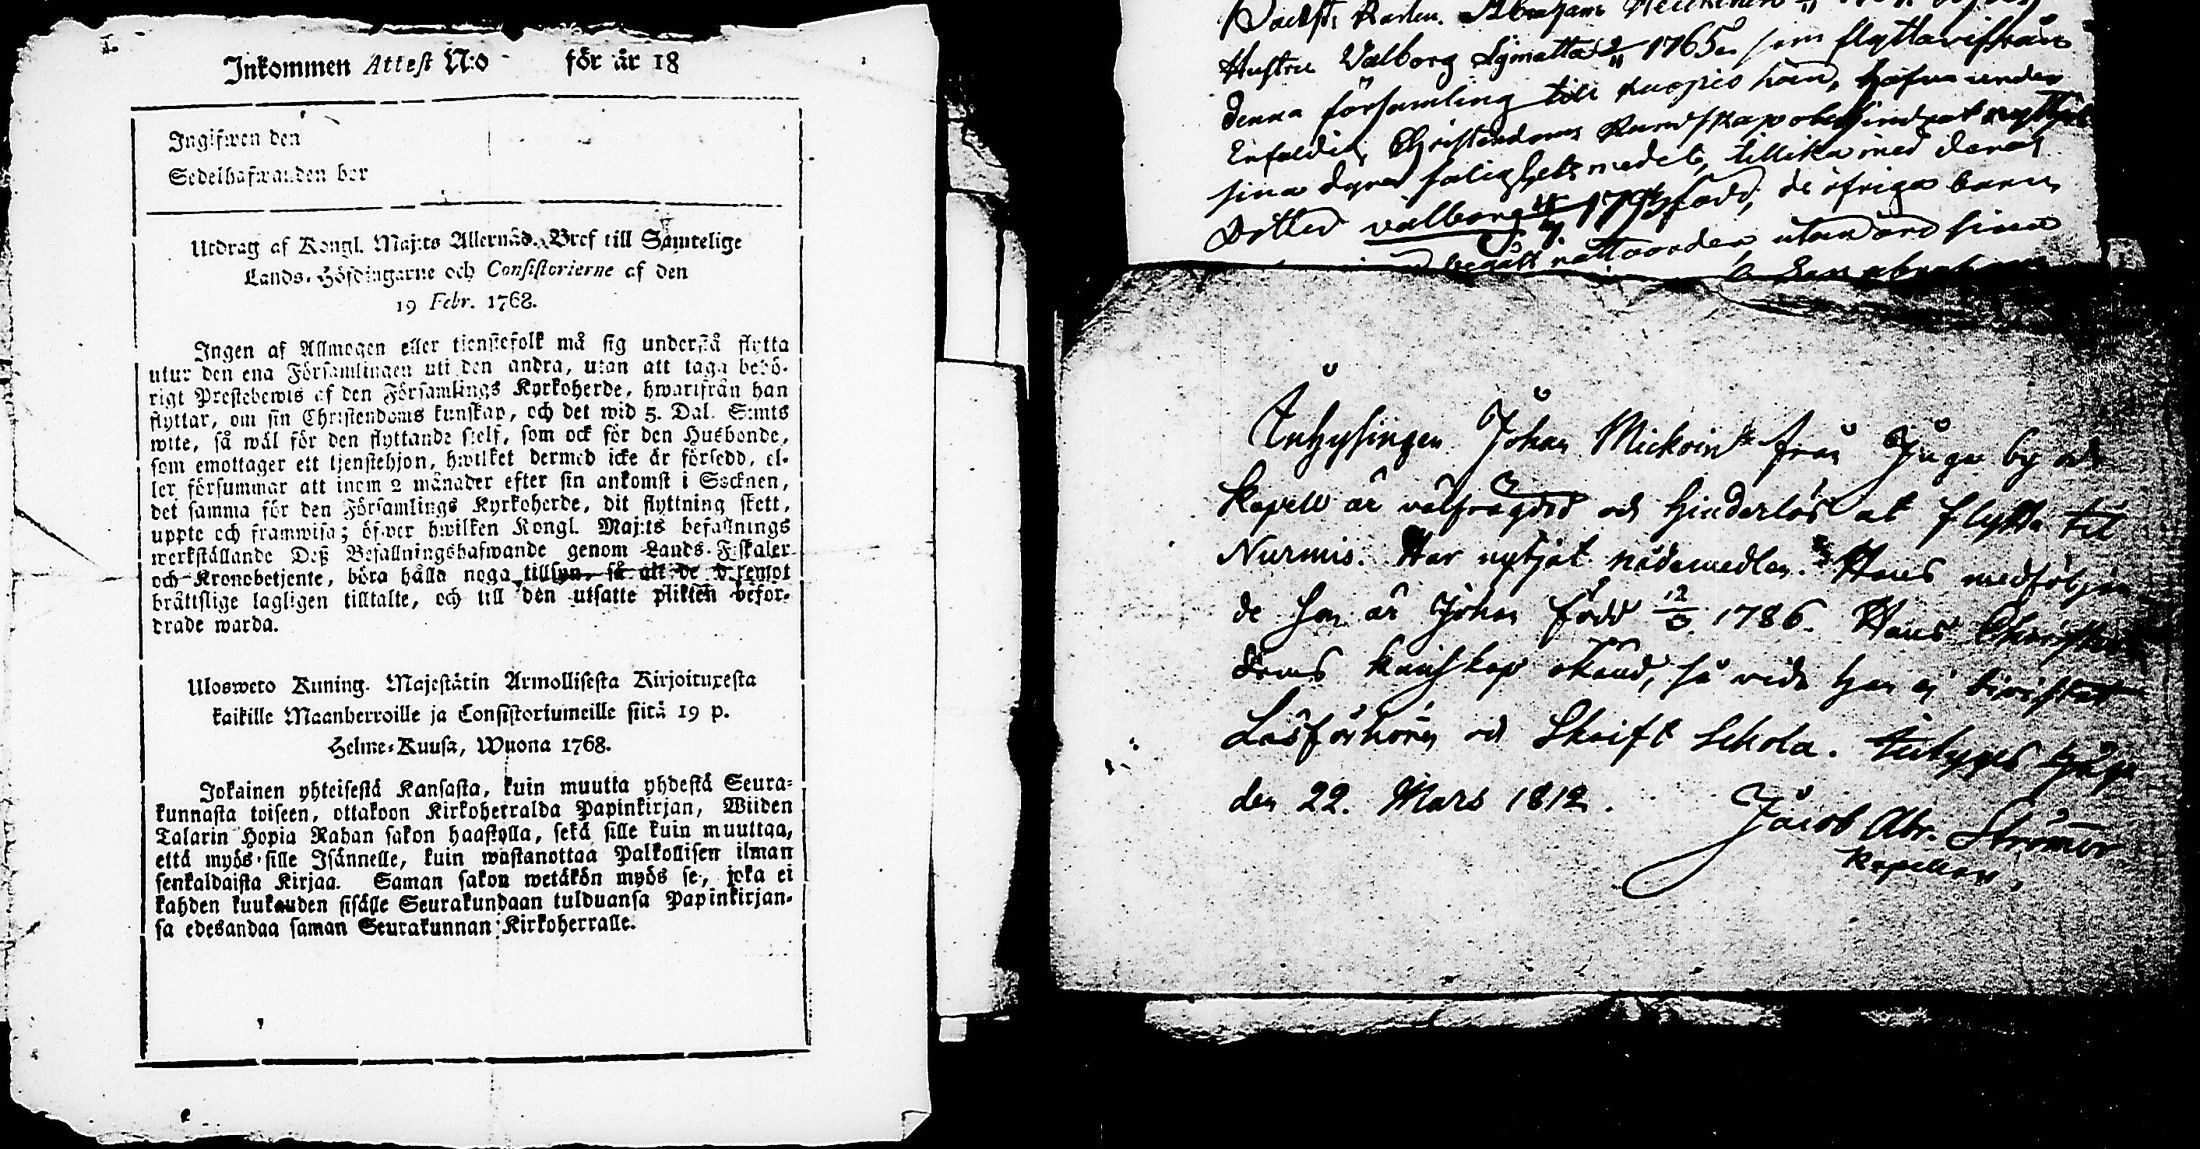 Inkommen Attest N:o för år 18
Ingifwen den
Sedelhafwanden bor
Utdrag af Kongl. Maj:ts Allernåd. Bref till Samtelige
Lands-Höfdingarne och Consistorierne af den
19 Febr. 1768.
Ingen af Allmogen eller tienstefolk må sig understå flytta
utur den ena Församlingen uti den andra, utan att taga behö-
rigt Prestebewis af den Församlings Kyrkoherde, hwarifrån han
flyttar, om sin Christendoms kunskap, och det wid 5. Dal. S:mts
wite, så wäl för den flyttande sielf, som ock för den Husbonde,
som emottager ett tjenstehjon, hwilket dermed icke är försedd, el-
ler försummar att inom 2 månader efter sin ankomst i Socknen,
det samma för den Församlings Kyrkoherde, dit flyttning skett,
uppte och framwisa; öfwer hwilken Kongl. Maj:ts befallnings
werkställande Deß Befallningshafwande genom Lands-Fiskaler
och Kronobetjente, böra hålla noga tillsyn, så att de deremot
bråttslige lagligen tilltalte, och till den utsatte plikten befor-
drade warda.
Ulosweto Kuning. Majestätin Armollisesta Kirjoituxesta
kaikille Maanherroille ja Consistoriumeille siitä 19 p.
Helme-Kuusa, Wuona 1768.
Jokainen yhteisestä Kansasta, kuin muutta yhdestä Seura-
kunnasta toiseen, ottakoon Kirkoherralda Papinkirjan, Wiiden
Talarin Hopia Rahan sakon haastolla, sekä sille kuin muuttaa,
että myös sille Isännelle, kuin wastanottaa Palkollisen ilman
senkaldaista Kirjaa. Saman sakon wetäkön myös se, joka ei
kahden kuukauden sisälle Seurakundaan tulduansa Papinkirjan-
sa edesandaa saman Seurakunnan Kirkoherralle.
Abraham
Hustru Valborg 1765 som flyttar ifrån
denna församling till Kuopio län, hafwa under
Enfaldig Christendoms Kunskap
sina dyra salighets medel, tillika med deras
Dotter Valborg född, de öfriga barn
utan
Inhysingen Johan Mickoin från Juga by och
Kapell är välfrägdad och hinderlös at flytta til
Nurmis. Har nytjat nådemedlen. Hans medföljan
de son är Johan född 12/3 1786. Hans Christen
doms kunskap okänd, så vida han ej bivistat
Läsförhören och Skrift Schola. betyges Juga
den 22. Mars 1812.
Jacob Abr. Strömer
Kapellan.